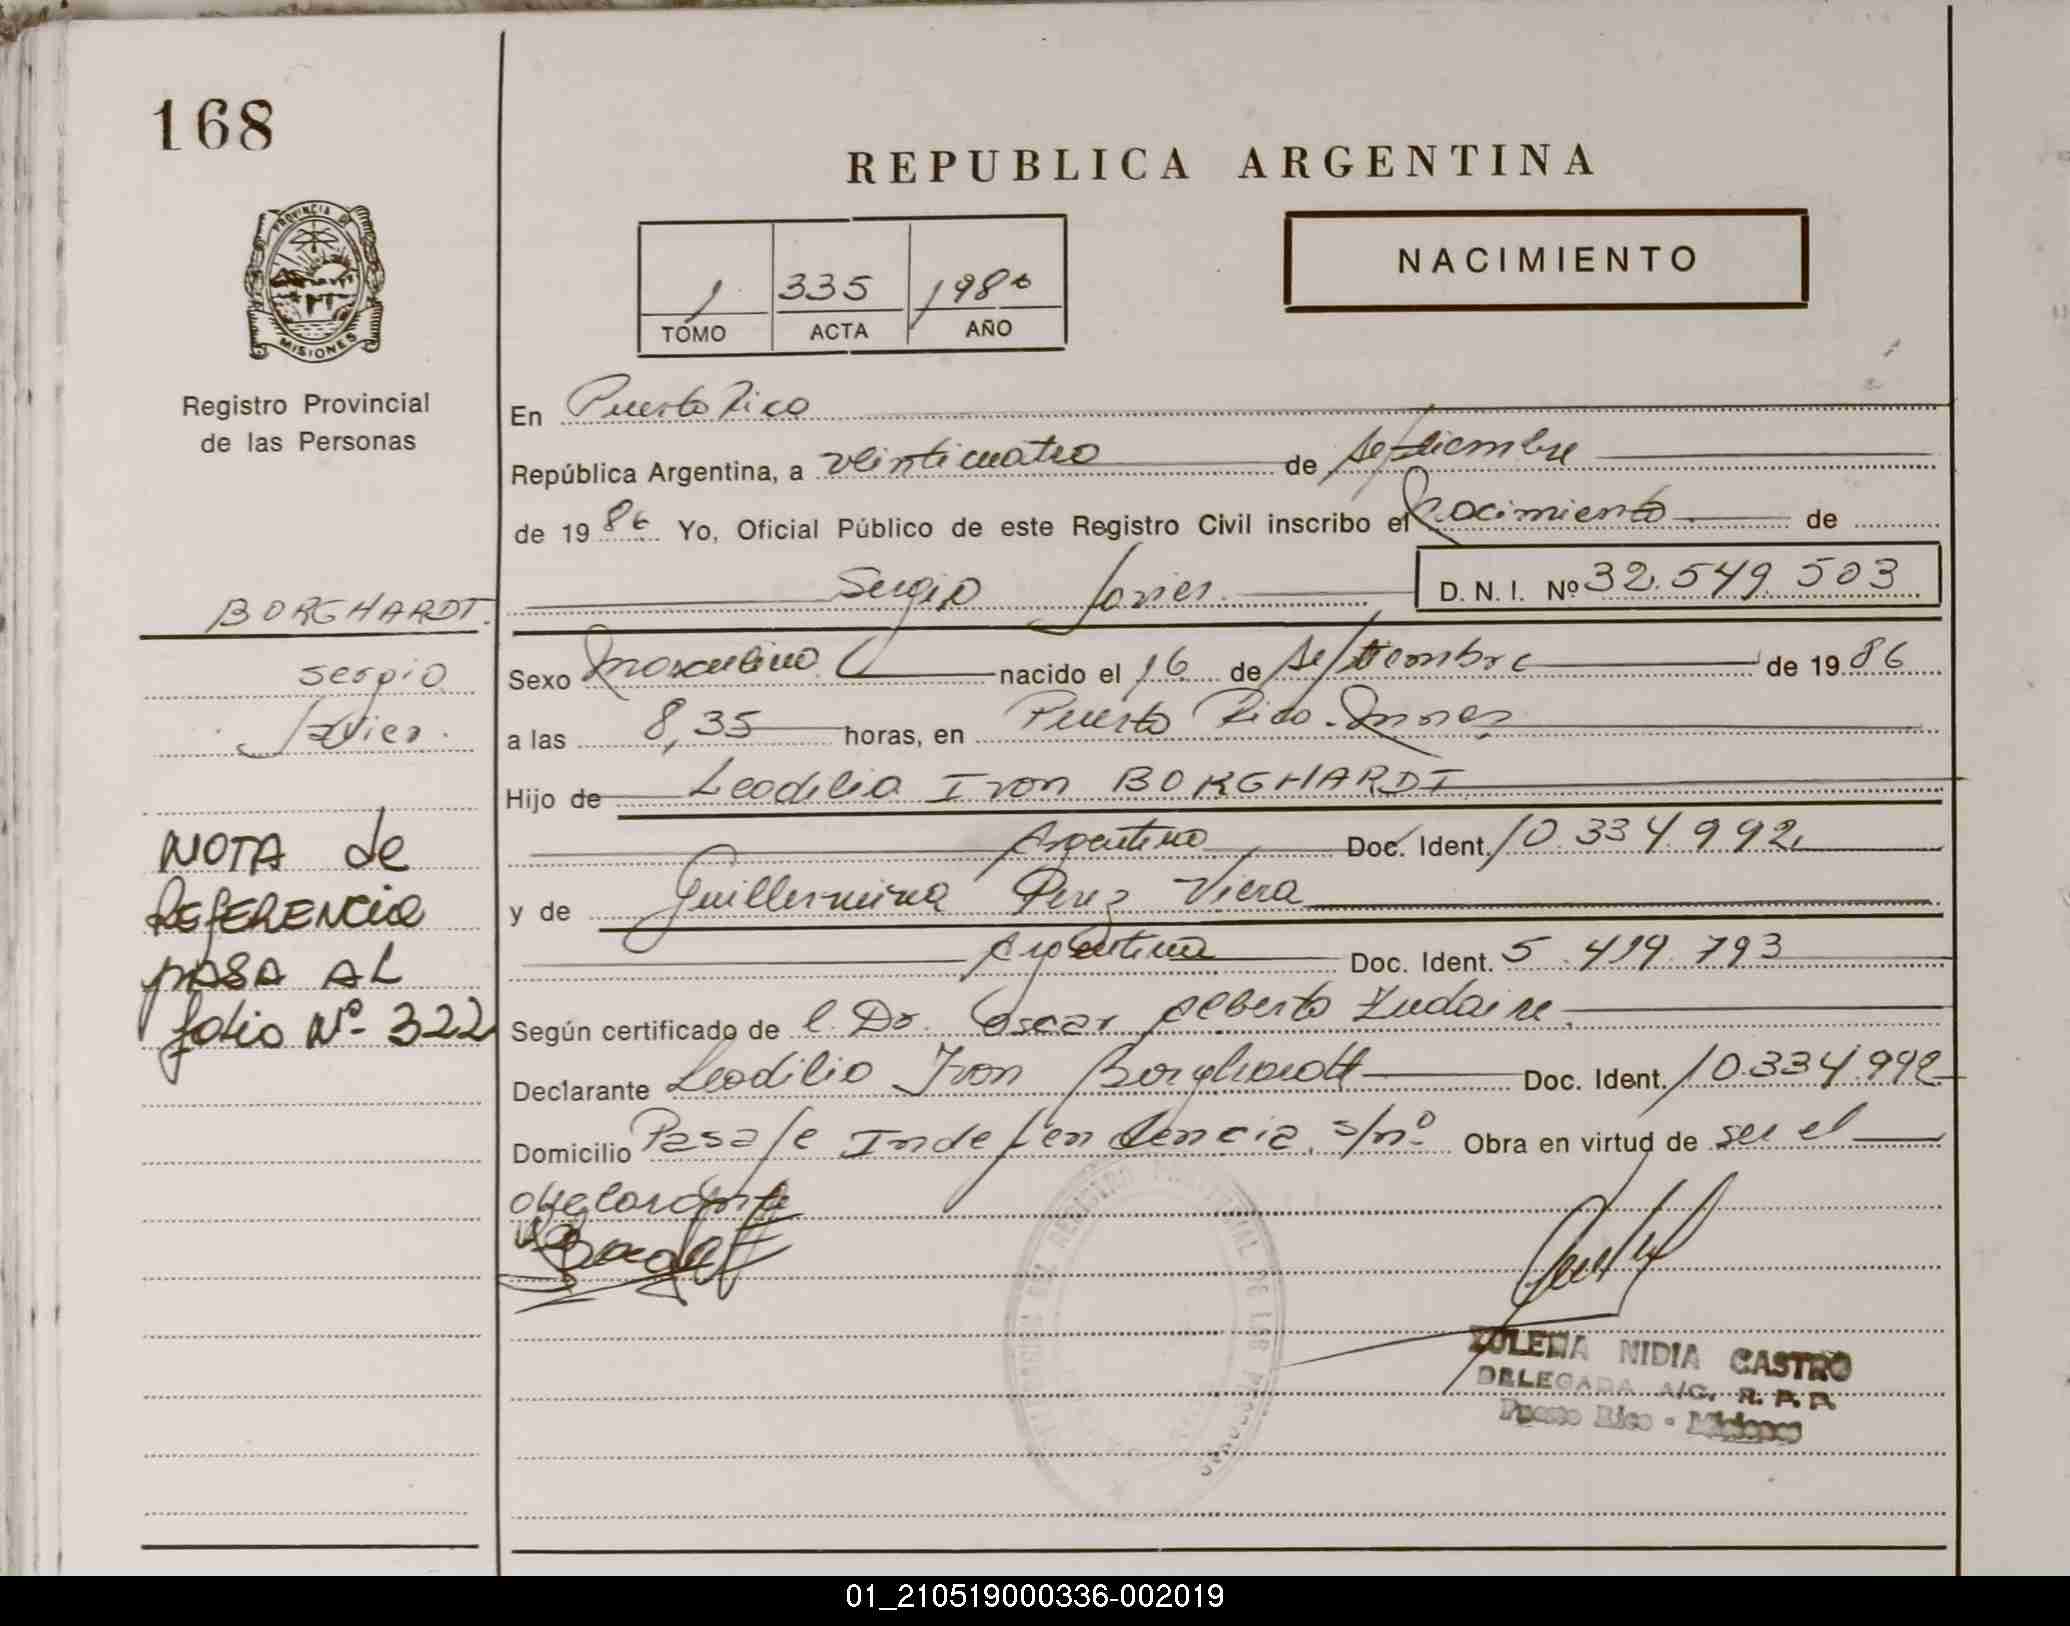 168
REPUBLICA ARGENTINA
NACIMIENTO
1 335 1986
TOMO ACTA AÑO
PROVINCIA DE
MISIONES
Registro Provincial
de las Personas
En Puerto Rico
República Argentina, a veinticuatro de septiembre
de 1986 Yo, Oficial Público de este Registro Civil inscribo el nacimiento de
BORGHARDT.
Sergio Javier D. N. I. Nº 32.549.503
Sergio
Javier.
Sexo masculino nacido el 16 de septiembre de 1986
a las 8,35 horas, en Puerto Rico - Mnes
Hijo de Leodilio Iron BORGHARDT
Argentino Doc. Ident. 10.334.992
y de Guillermina Perez Viera
Argentina Doc. Ident. 5.419.793
Según certificado de l. Dr. Oscar Alberto
Declarante Leodilio Iron Borghardt Doc. Ident. 10.334.992
Domicilio Pasaje Independencia, s/nº Obra en virtud de ser el
declarante
NOTA de
REFERENCIA
PASA AL
folio Nº 322
DEL REGISTRO PROVINCIAL DE LAS PERSONAS
ZULEMA NIDIA CASTRO
DELEGADA A/C. R. P. P.
Puerto Rico - Misiones
01_210519000336-002019